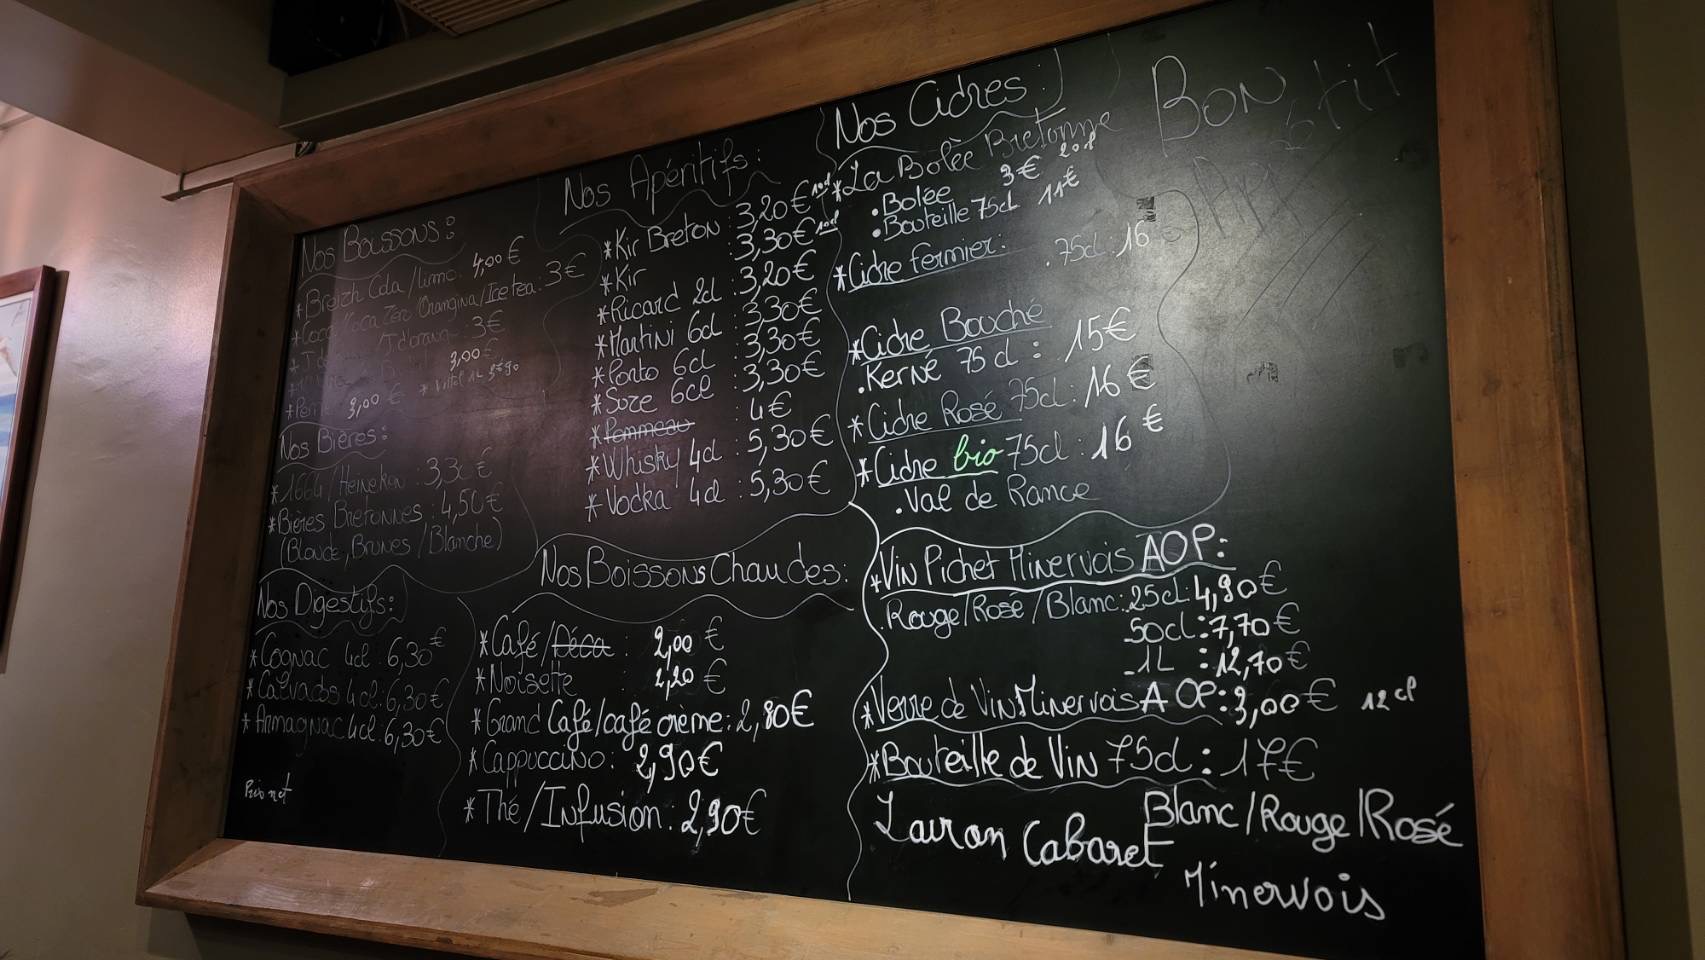 Nos Boissons:
*Breizh Cola/limo: 4,00€
*Coca/Coca Zero/Orangina/Ice tea: 3€
3€
3,00€
3,00 € * Vitel 1L 3€90
Nos Bières:
*1664/Heineken: 3,30€
*Bières Bretonnes: 4,50€
(Blonde, Brunes/Blanche)
Nos Digestifs:
*Cognac 4cl: 6,30€
*Calvados 4cl: 6,30€
*Armagnac 4cl: 6,30€
Prix net
Nos Apéritifs:
*Kir Breton: 3,20€ 10cl
*Kir : 3,30€ 10cl
*Ricard 2cl : 3,20€
*Martini 6cl : 3,30€
*Porto 6cl : 3,30€
*Suze 6cl : 3,30€
*Pommeau : 4€
*Whisky 4cl : 5,30€
*Vodka 4cl : 5,30€
Nos Boissons Chaudes:
*Café/Déca : 2,00 €
*Noisette : 2,20 €
*Grand Café/café crème: 2,80€
*Cappuccino: 2,90€
*Thé/Infusion: 2,90€
Nos Cidres:
*La Bolée Bretonne
.Bolée 3€ 20cl
.Bouteille 75cl 11€
*Cidre fermier:
.75cl: 16€
*Cidre Bouché
.Kerné 75cl : 15€
*Cidre Rosé 75cl: 16€
*Cidre bio 75cl : 16€
.Val de Rance
*Vin Pichet Minervois AOP:
Rouge/Rosé/Blanc: 25cl: 4,90€
50cl: 7,70€
1L : 12,70€
*Verre de Vin Minervois AOP: 3,00€ 12cl
*Bouteille de Vin 75cl: 17€
Blanc/Rouge/Rosé
Cabaret
Minervois
Bon
Appétit